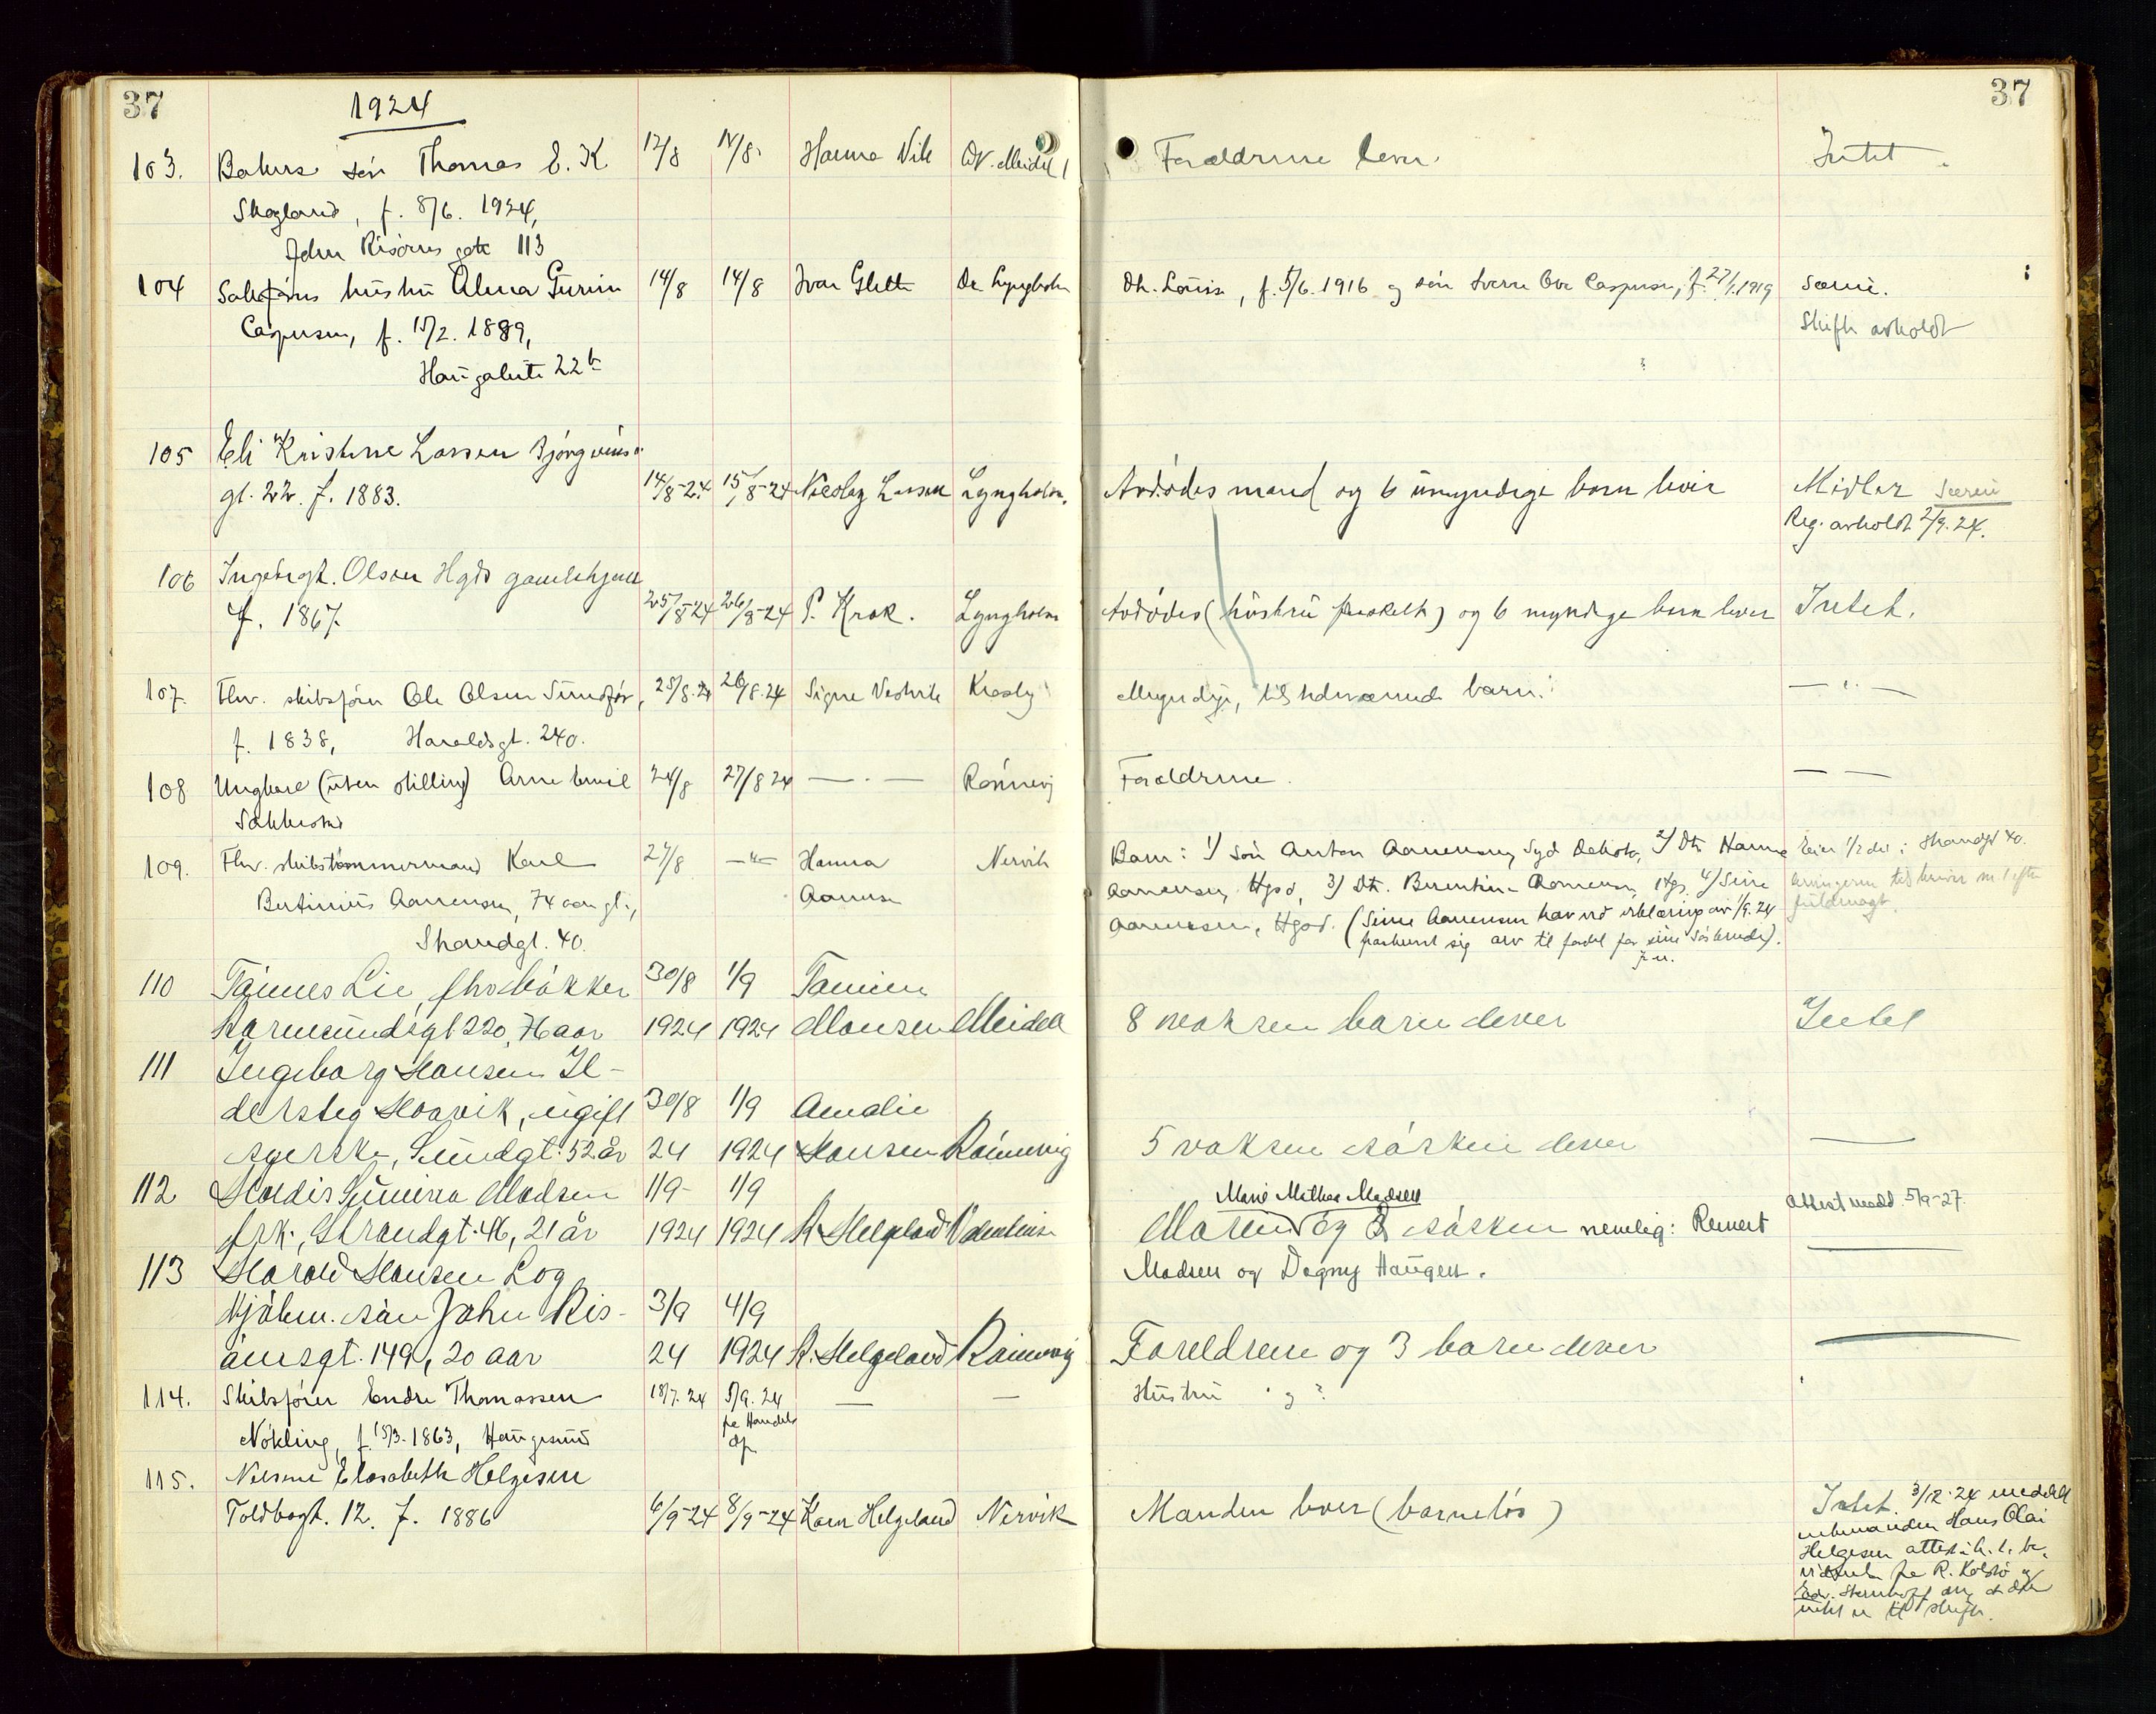 37
1924
37
103. Bakers søn Thomas E. K 12/8 14/8. Hanna Vik Dr. Meidell Forældrene lever. Intet
Skogland, f. 8/6. 1924,
John Risøens gate 113
104 húshú Alma Gurine 14/8 14/8 Ivar Glette Dr Lyngholm Dtr. Louise, f. 5/6. 1916 og søn Sverre Ove Caspersen, f. 27/1. 1919 Særeie.
Caspersen, f. 15/2. 1889, Skifte avholdt
Haugalutí 22b
105 Eli Kristine Larsen Bjørgvins
gt. 22. f. 1883. 14/8-24 15/8-24 Nicolay Larsen Lyngholm. Avdødes mand og 6 umyndige barn lever Midler Særeie
Reg. avholdt 2/9.24.
106 Ingebrgt. Olsen Hgsd gamlehjem
f. 1867. 25/8-24 26/8-24 P. Krok. Lyngholm Avdødes (hustru fraskilt) og 6 myndige barn lever Intet.
107. Fhv. skibsfører Ole Olsen Sundfør, 25/8.24 26/8.24 Signe Vestvik Krosby Myndige, tilstedeværende barn. — " —
f. 1838, Haraldsgt. 240.
108 Ungkarl (uten stilling) Arne Emil 24/8 27/8 24 — . — Rønnevig Forældrene. — —
Sakkestad
109. Fhv. skibstømmermand Karl 27/8 — " — Hanna Nervik Barn: 1) søn Anton Aanensen, Syd Dakota, 2) Dtr Hanna Eier 1/2 del i Strandgt 40.
Bertinius Aanensen, 74 aar gl., Aanensen Aanensen, Hgsd, 3) Dtr. Berentine Aanensen, Hgs. 4) Sine
Strandgt. 40. Aanensen, Hgsd. (Sine Aanensen har ved erklæring av 1/9.24 fuldmagt.
fraskrevet sig arv til fordel for sine søskende).
110 Tønnes Lie, fhv bakker 30/8 1/9 Tomine
Karmsundsgt 220, 76 aar 1924 1924 Monsen Meidell 8 voksen barn lever Intet
111 Ingeborg Hansen Il-
dersteg Hoavik, ugift 30/8 1/9 Amalie
syerske, Sundgt. 52 år 24 1924 Hansen Rønnevig 5 voksen søsken lever —
112 Hordis Gurina Madsen 1/9- 1/9 Marie Mathea Madsen Attest medd. 5/9-27.
frk., Strandgt. 46, 21 år 1924 1924 K Helgeland Valentinsen Moren og 2 søsken nemlig: Remert
113 Harald Hansen Log Madsen og Dagny Haugen. —
Mjølm. søn John Ris- 3/9 4/9
øensgt. 149, 20 aar 24 1924 K. Helgeland Rønnevig Foreldrene og 3 barn lever —
114. Skibsfører Endre Thomassen 18/7. 24 5/9. 24 — — Hustru og ?
Nøkling, f. 15/3. 1863, Haugesund fra Handels
dp.
115. Nilsine Elisabeth Helgesen
Toldbogt. 12. f. 1886 6/9-24 8/9-24 Karn Helgeland Nervik Manden lever (barneløs) Intet. 3/12.24 meddelt
enkemanden Hans Olai
Helgesen attest
fra R. Kolstø og
skifte.